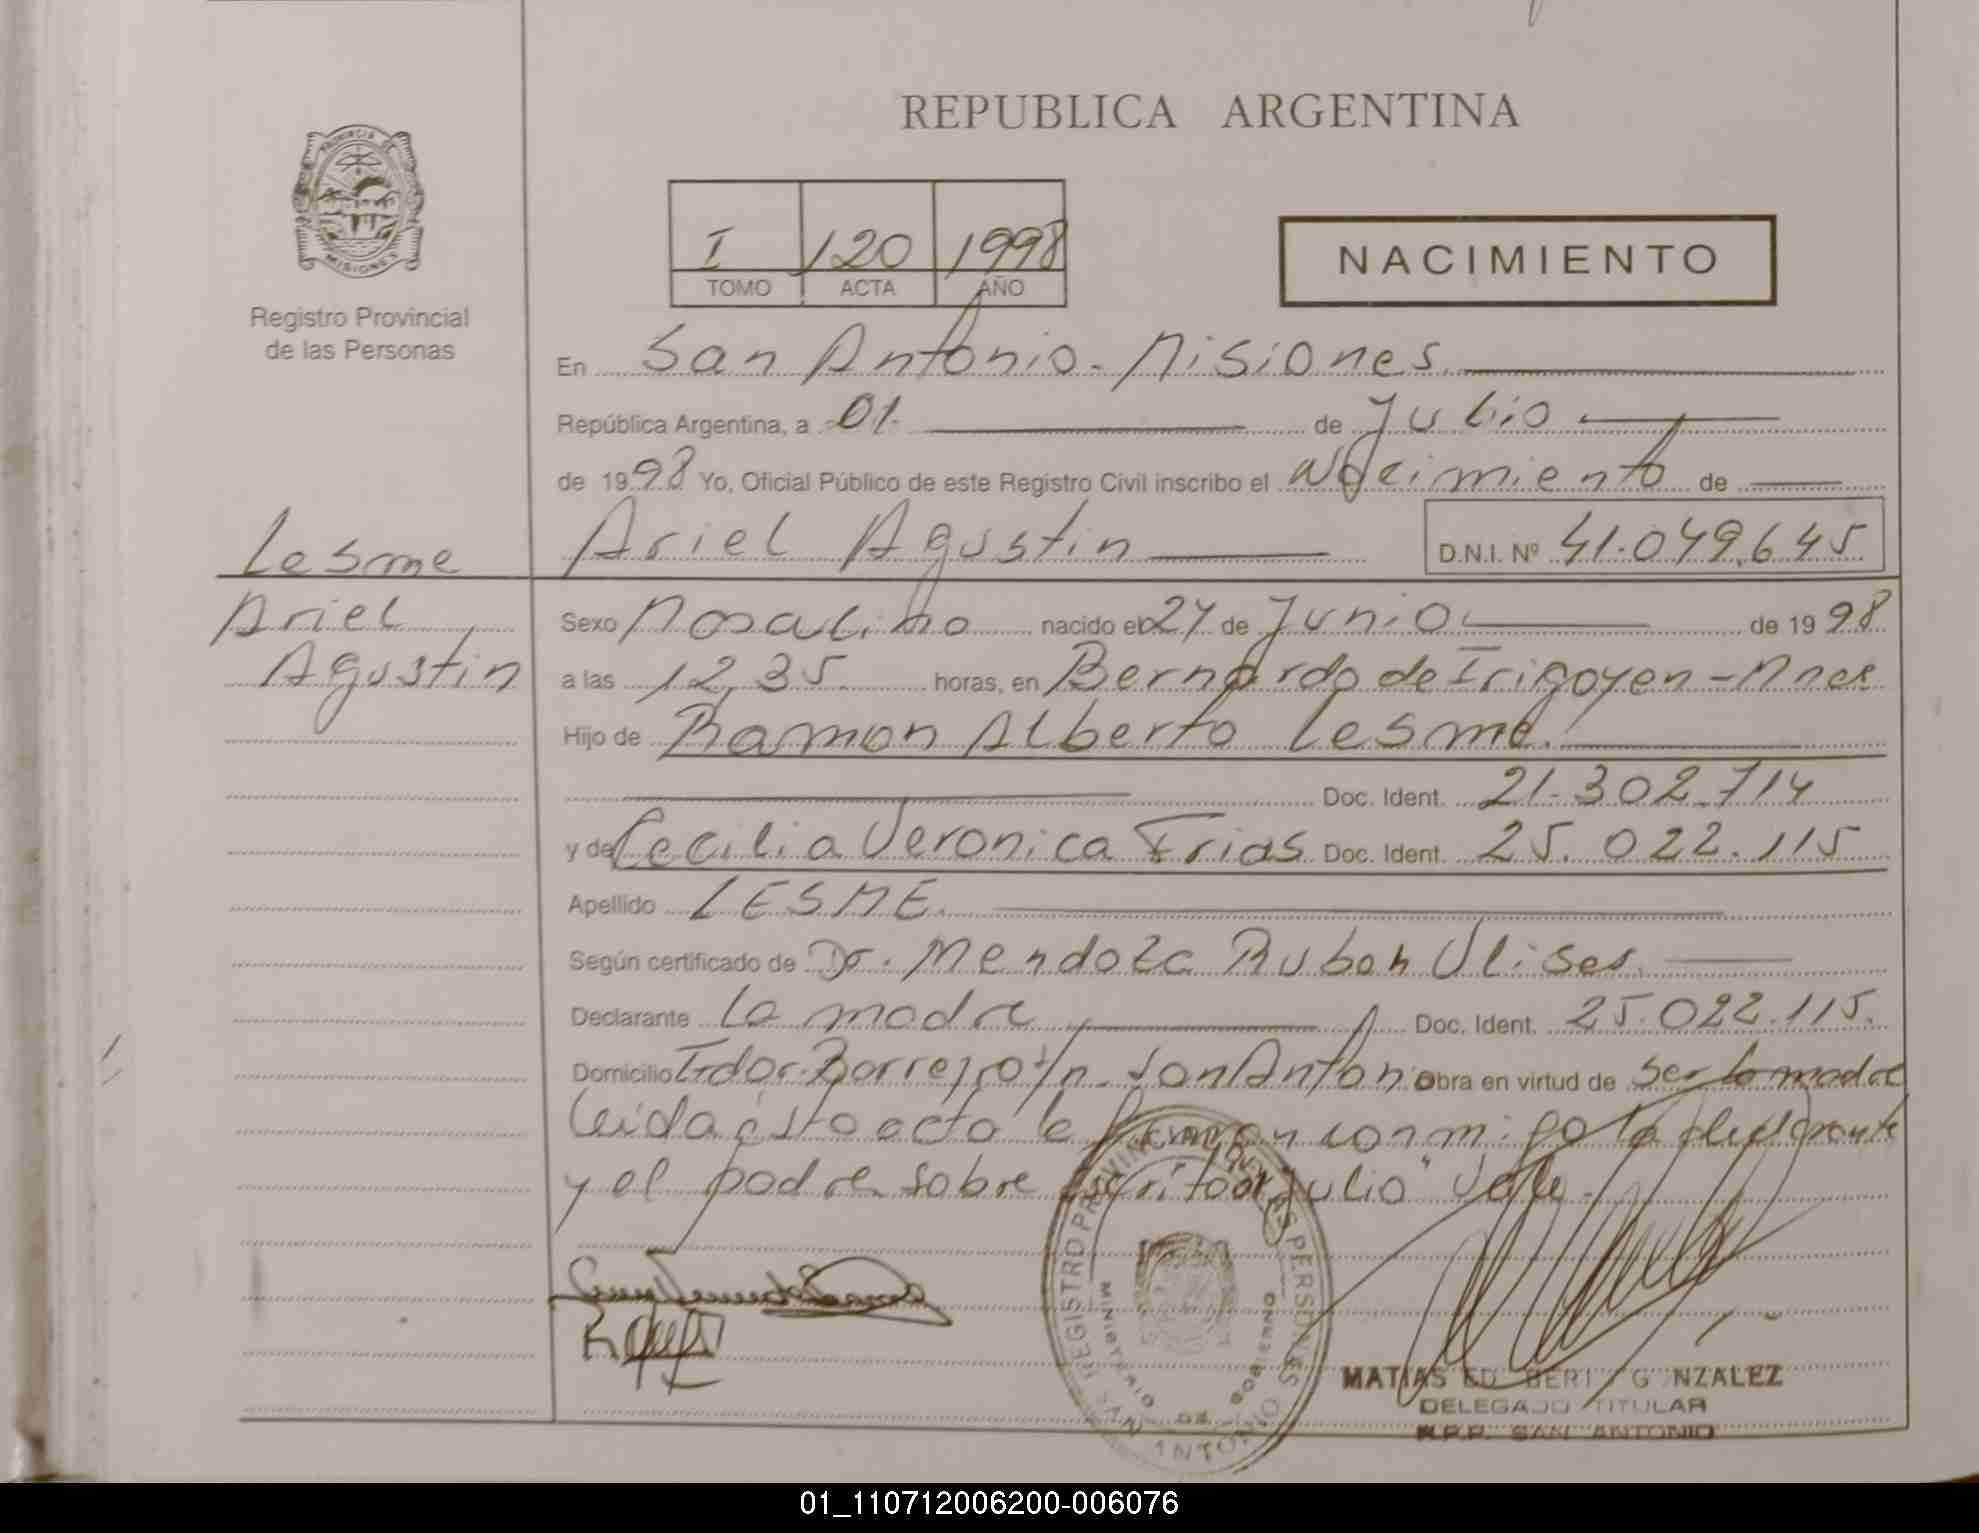 REPUBLICA ARGENTINA
PROVINCIA DE MISIONES
Registro Provincial
de las Personas
I 120 1998
TOMO ACTA AÑO
NACIMIENTO
En San Antonio - Misiones
República Argentina, a 01 de Julio
de 1998 Yo, Oficial Público de este Registro Civil inscribo el Nacimiento de
Ariel Agustin D.N.I. Nº 41.049.645
Lesme
Ariel
Agustin
Sexo nacido el de Junio de 1998
a las 12,35 horas, en Bernardo de Irigoyen - Mnes
Hijo de Ramon Alberto Lesme.
Doc. Ident. 21.302.714
y de Cecilia Veronica Frias Doc. Ident. 25.022.115
Apellido LESME.
Según certificado de Dr. Mendoza Ruben Ulises
Declarante La madre Doc. Ident. 25.022.115.
Domicilio San Antonio obra en virtud de ser la madre
leida esta acta la firman conmigo la declarante
y el padre sobre escrito "Julio" Vale.
REGISTRO PROVINCIAL DE LAS PERSONAS
MINISTERIO DE GOBIERNO
SAN ANTONIO
MATIAS GONZALEZ
DELEGADO TITULAR
R.P.P. SAN ANTONIO
01_110712006200-006076